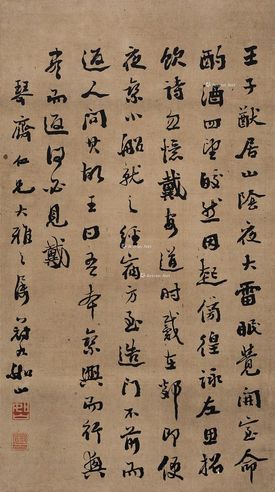 王子猷居山陰夜大雪眠覺開室命
酌酒四望皎然因起彷徨詠左思招
隱詩忽憶戴安道時戴在剡即便
夜乘小船就之經宿方至造門不前而
返人問其故王曰吾本乘興而行興
盡而返何必見戴
琴齋仁兄大雅之屬